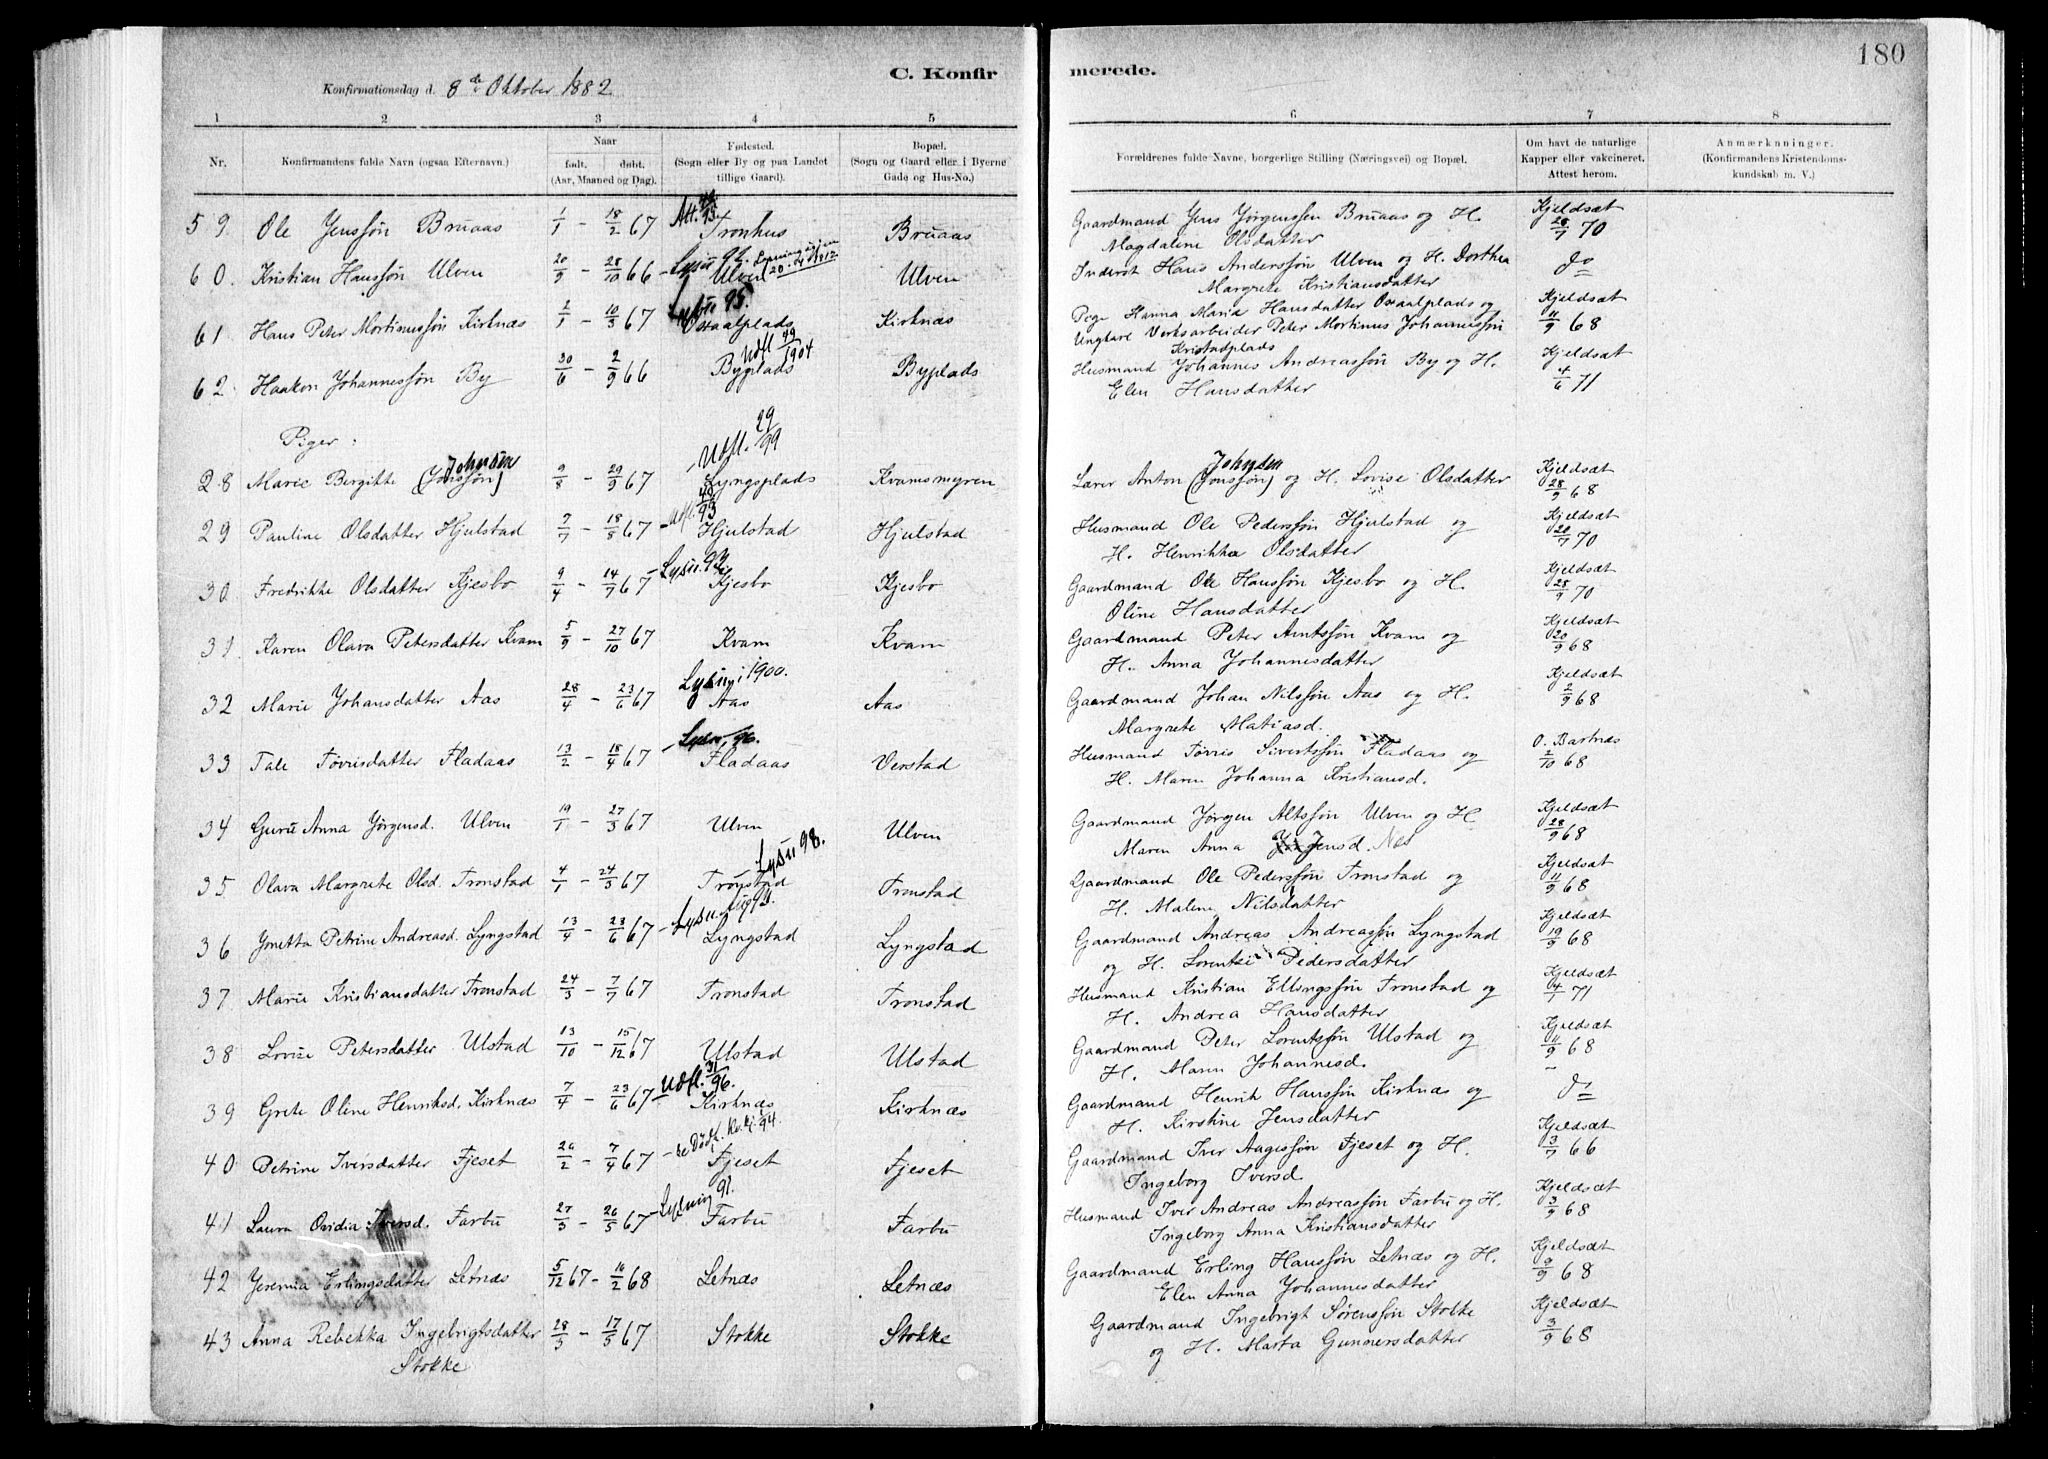 180
C. Konfirmerede.
Konfirmationsdag d. 8de Oktober 1882
1 2 3 4 5 6 7 8
Nr. Konfirmandens fulde Navn (ogsaa Efternavn.) Naar født, døbt. (Aar, Maaned og Dag). Fødested. (Sogn eller By og paa Landet tillige Gaard). Bopæl. (Sogn og Gaard eller i Byerne Gade og Hus-No.) Forældrenes fulde Navne, borgerlige Stilling (Næringsvei) og Bopæl. Om havt de naturlige Kapper eller vakcineret. Attest herom. Anmærkninger. (Konfirmandens Kristendomskundskab m. V.)
59. Ole Jenssøn Bruaas 1/1 - 18/2 67 Att. Tronhus Bruaas Gaardmand Jens Jørgenssøn Bruaas og H. Kjeldsæt 28/7 70
Magdalene Olsdatter
60. Kristian Hanssøn Ulven 20/9 - 28/10 66 Ulven Ulven Inderst Hans Anderssøn Ulven og H. Dorthea do
Margrete Kristiansdatter
61 Hans Peter Mortinussøn Kirknæs 2/1 - 10/3 67 Lysn 95. Oxaalplads Kirknæs Pige Hanna Maria Hansdatter Oxaalplads og Kjeldsæt 11/9 68
Ungkarl Verksarbeider Peter Mortinus Johannessøn
Kristadplads
62. Haakon Johannessøn By 30/6 - 2/9 66 Udfl 49/1904 Byplads Byplads Husmand Johannes Andreassøn By og H. Kjeldsæt 4/6 71
Elen Hansdatter
Piger:
28 Marie Bergitte (Jonssøn) Johnsen 9/8 - 29/9 67 Udfl. 29/99 Lyngsplads Kvamsmyren Lærer Anton (Jonssøn) Johnsen og H. Lovise Olsdatter Kjeldsæt 28/9 68
29 Pauline Olsdatter Hjulstad 7/7 - 18/8 67 Udfl. 40/93 Hjulstad Hjulstad Husmand Ole Pederssøn Hjulstad og Kjeldsæt 20/7 70
H. Henrikka Olsdatter
30 Fredrikke Olsdatter Kjesbo 9/4 - 14/7 67 Kjesbo Kjesbo Gaardmand Ole Hanssøn Kjesbo og H. Kjeldsæt 28/9 70
Oline Hansdatter
31. Karen Olava Petersdatter Kvam 5/9 - 27/10 67 Kvam Kvam Gaardmand Peter Arntssøn Kvam og Kjeldsæt 20/9 68
H. Anna Johannesdatter
32 Marie Johansdatter Aas 28/4 - 23/6 67 Lysn. i 1900. Aas Aas Gaardmand Johan Nilssøn Aas og H. Kjeldsæt 2/9 68
Margrete Matiasd.
33 Tale Tørrisdatter Fladaas 13/2 - 18/4 67 Lysn. 96. Fladaas Verstad Husmand Tørris Sivertssøn Fladaas og O. Bartnes 2/10 68
H. Maren Johanna Kristiansd.
34 Guru Anna Jørgensd. Ulven 19/1 - 27/3 67 Ulven Ulven Gaardmand Jørgen Altssøn Ulven og H. Kjeldsæt 28/9 68
Maren Anna Jensd.
35. Olava Margrete Olsd. Tronstad 4/1 - 24/3 67 Lysn 98. Tronstad Tronstad Gaardmand Ole Pederssøn Tronstad og Kjeldsæt 11/9 68
H. Malene Nilsdatter
36 Jonetta Petrine Andreasd. Lyngstad 13/4 - 23/6 67 Lyngstad Lyngstad Gaardmand Andreas Andreassøn Lyngstad Kjeldsæt 19/9 68
og H. Lorentse Pedersdatter
37 Marie Kristiansdatter Tronstad 24/3 - 7/7 67 Tronstad Tronstad Husmand Kristian Ellingssøn Tronstad og Kjeldsæt 4/1 71
H. Andrea Hansdatter
38 Lovise Petersdatter Ulstad 13/10 - 15/12 67 Ulstad Ulstad Gaardmand Peter Lorentssøn Ulstad og Kjeldsæt 11/9 68
H. Maren Johannesd.
39 Grete Oline Henriksd. Kirknæs 7/4 - 23/6 67 Udfl. 31/96. Kirknæs Kirknæs Gaardmand Henrik Hanssøn Kirknæs og do
H. Kirstine Jensdatter
40 Petrine Iversdatter Fjeset 26/2 - 7/4 67 Fjeset Fjeset Gaardmand Iver Aagessøn Fjeset og H. Kjeldsæt 3/7 66
Ingeborg Iversd.
41 Laura Ovidia Iversd. Farbu 27/3 - 26/5 67 Lysning 91. Farbu Farbu Husmand Iver Andreas Andreassøn Farbu og H. Kjeldsæt 3/9 68
Ingeborg Anna Kristiansdatter
42 Jeremia Erlingsdatter Letnæs 5/12 67 - 16/2 68 Letnæs Letnæs Gaardmand Erling Hanssøn Letnæs og H. Kjeldsæt 9/9 68
Elen Anna Johannesdatter
43 Anna Rebekka Ingebrigtsdatter 28/3 - 17/5 67 Stokke Stokke Gaardmand Ingebrigt Sørenssøn Stokke Kjeldsæt 3/9 68
Stokke og H. Marta Gunnersdatter